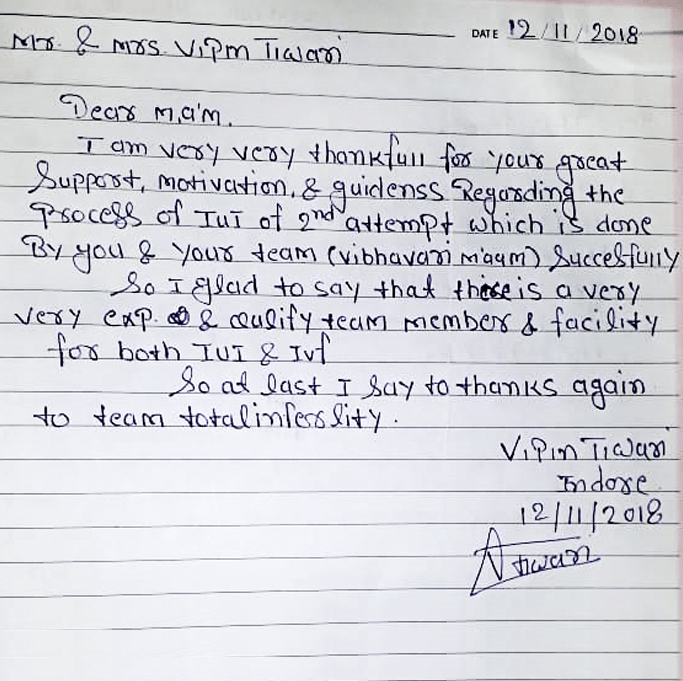 DATE 12/11/2018
Mr. & Mrs. Vipin Tiwari
Dear M,a'm.
I am very very thankfull for your great
Support, motivation, & guidenss Regarding the
Process of IUI of 2nd attempt which is done
By you & your team (vibhavari m'aam) Succesfully
So I glad to say that there is a very
very exp. & qulify team member & facility
for both IUI & Ivf
So at last I say to thanks again
to team totalinferslity.
Vipin Tiwari
Indore.
12/11/2018
Tiwari